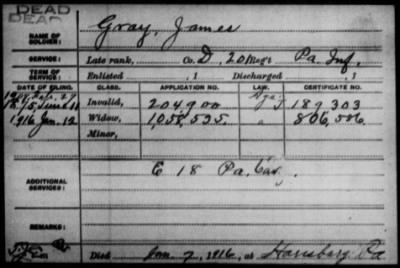 DEAD
DEAD
NAME OF SOLDIER: Gray, James
SERVICE: Late rank, Co. D, 20 Regt Pa. Inf.
TERM OF SERVICE: Enlisted , 1 Discharged , 1
DATE OF FILING. CLASS. APPLICATION NO. LAW. CERTIFICATE NO.
Invalid, 204900 189,303
1916 Jan. 12 Widow, 1,058,535 " 806,506
Minor,
ADDITIONAL SERVICES: E 18 Pa. Cav.
REMARKS:
Died Jan. 7, 1916, at Harrisburg Pa